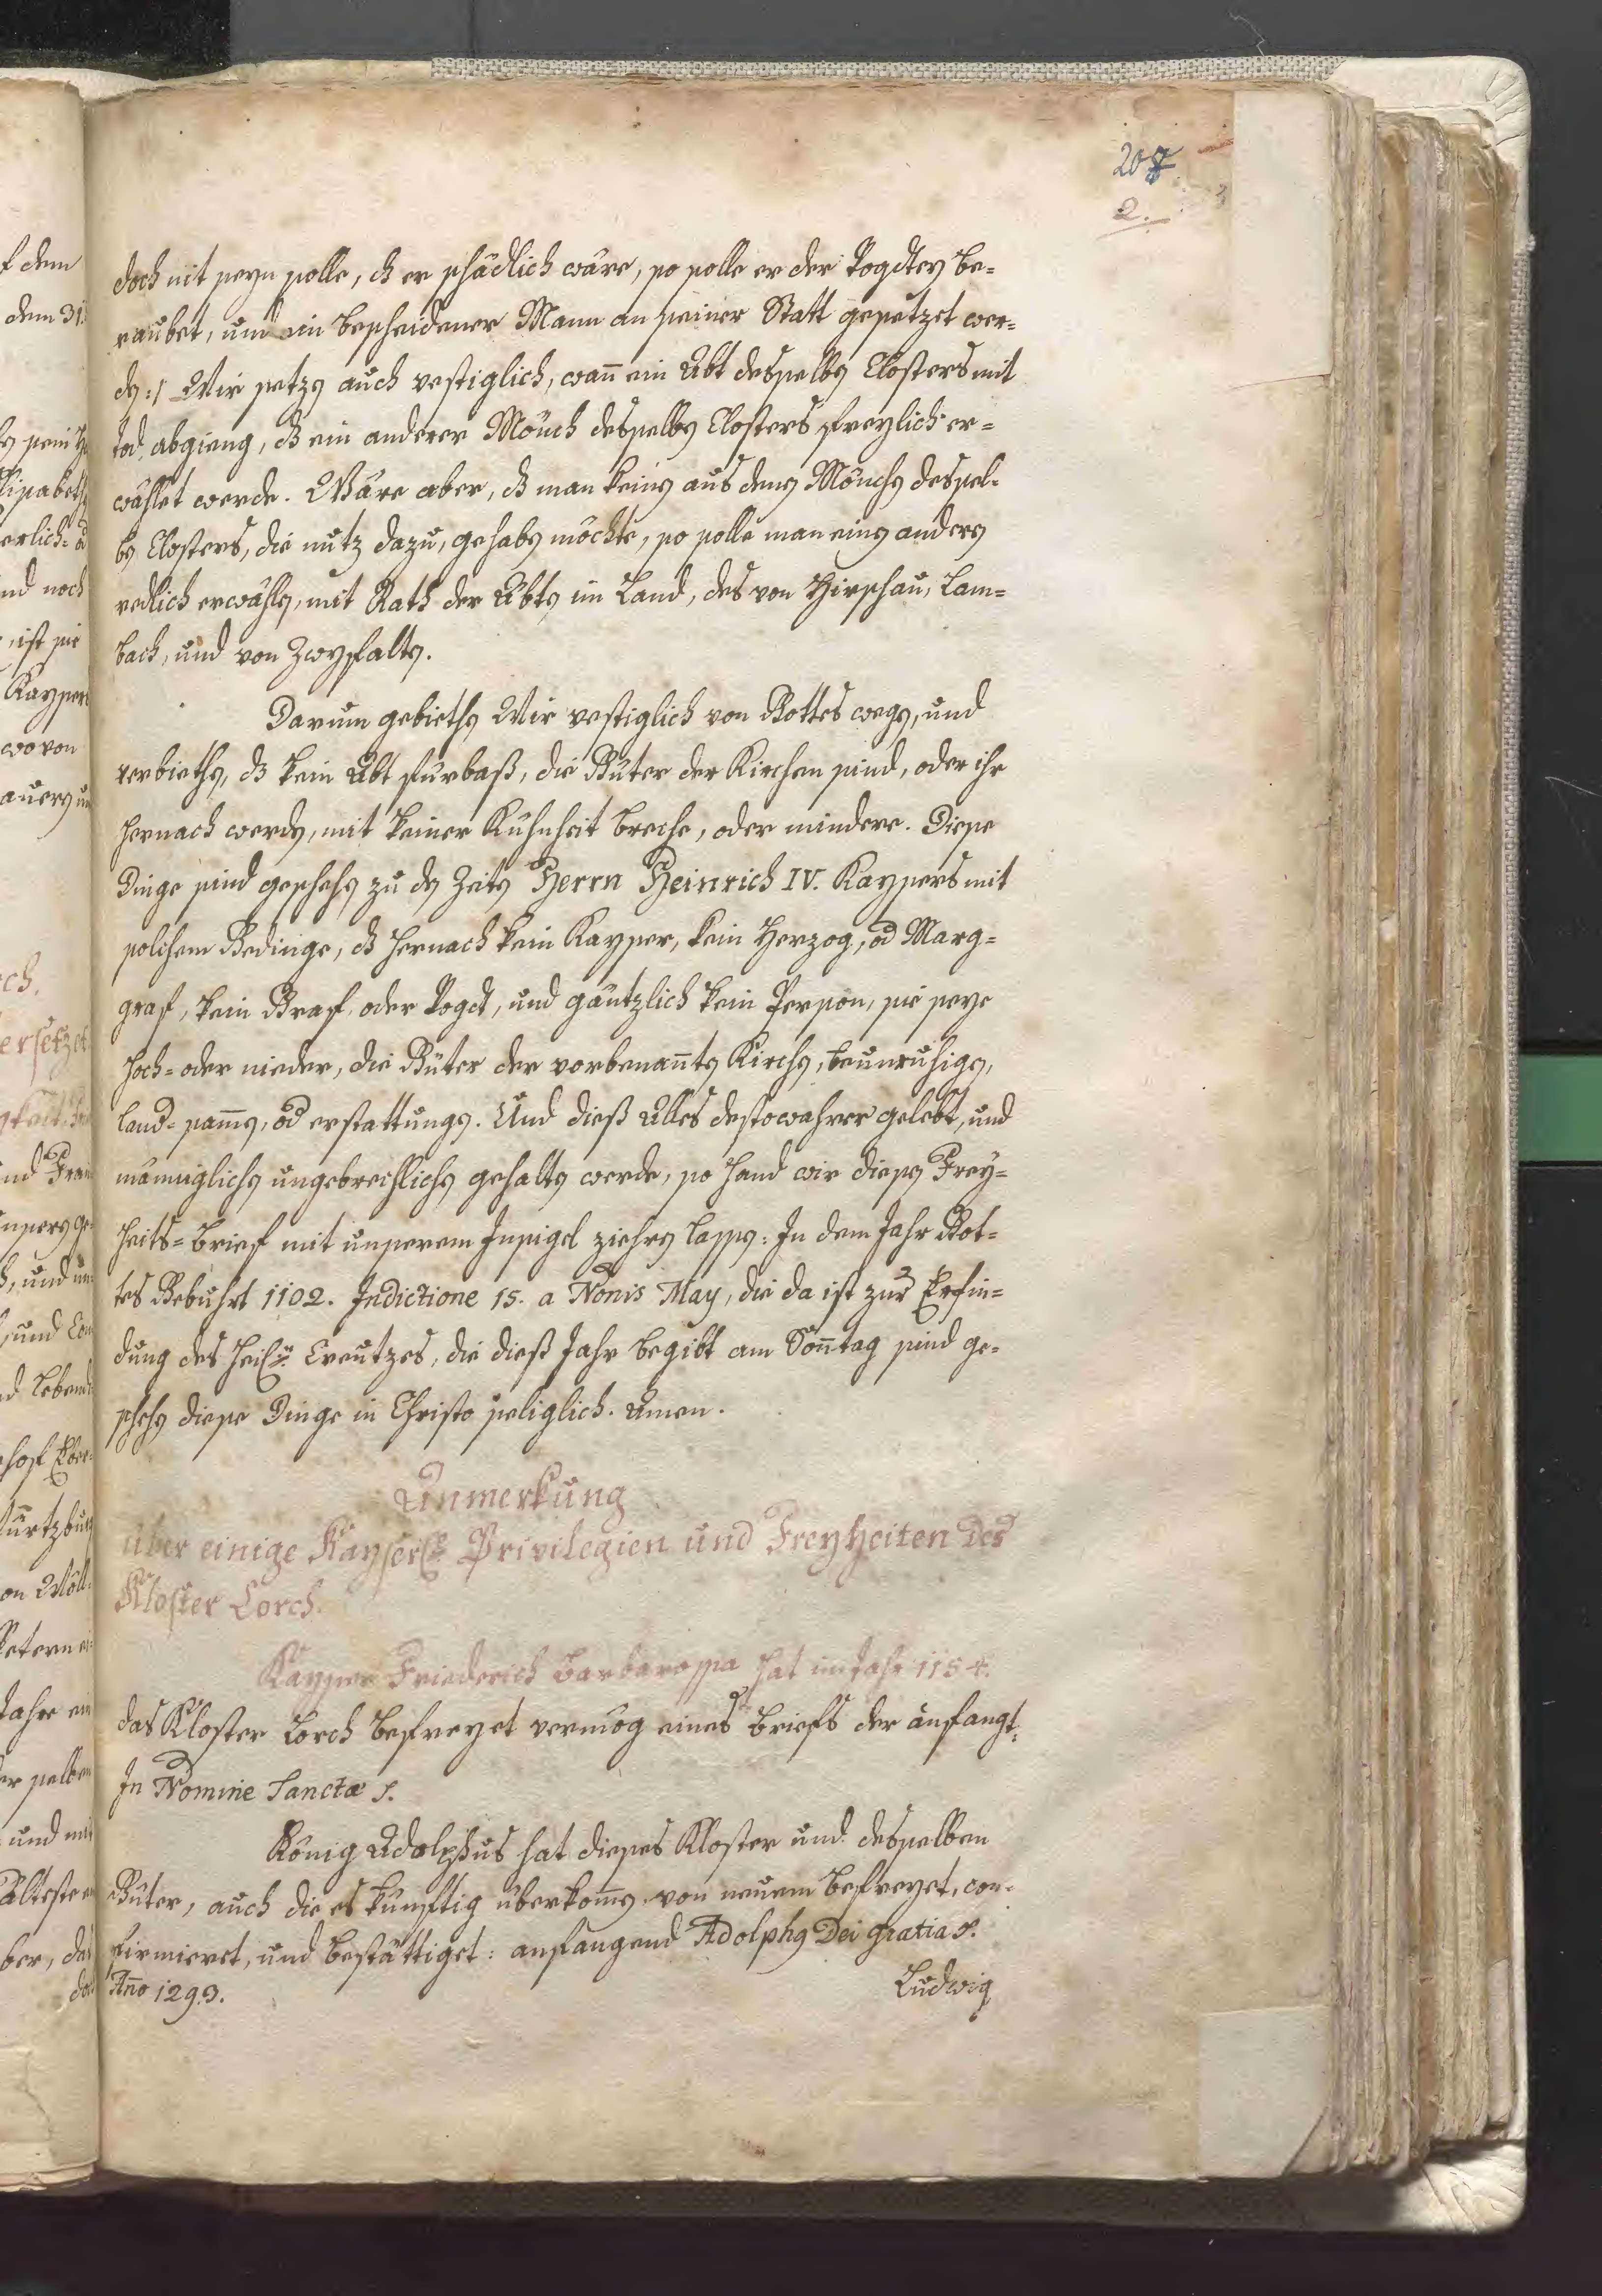 207
2.
doch nit seyn solle, dz er schädlich wäre, so solle er der Vogdtey be-
raubet, und ein bescheidener Mann an seiner Statt gesetzet wer-
den :/ Wir setzen auch vestiglich, wan̄ ein Abt desselben Closters mit
tod abgieng, dz ein anderer Mönch desselben Closters freylich er-
wählet werde. Wäre aber, dz man keinen aus denen Mönchen dessel-
ben Closters, die nutz dazu, gehaben möchte, so solle man einen andern
redlich erwählen, mit Rath der Äbten im Land, des von Hirschau, Lam-
bach, und von Zwyfalten.
Darum gebiethen Wir vestiglich von Gottes wegen, und
verbiethen, dz kein Abt fürbaß, die Güter der Kirchen sind, oder ihr
hernach werden, mit keiner Kühnheit breche, oder mindere. Diese
Dinge sind geschehen zu den Zeiten Herrn Heinrich IV. Kaysers mit
solchem Gedinge, dz hernach kein Kayser, kein Herzog, od Marg-
graf, kein Graf, oder Vogdt, und gäntzlich kein Person, sie seye
hoch- oder nieder, die Güter der vorbenan̄ten Kirchen, beunruhigen,
land-sam̄en, od erstattungen. Und dieß Alles destowahrer gelebt, und
männiglichen ungebrechlichen gehalten werde, so hand wir diesen Frey-
heits-Brief mit unserem Insigel ziehren lassen: In dem Jahr Got-
tes Gebuhrt 1102. Indictione 15. a Nonis May, die da ist zur Erfin-
dung des heil. Creutzes, die dieß Jahr begibt am Son̄tag sind ge-
schehen diese Dinge in Christo seliglich. Amen.
Anmerkung
über einige Kayserl. Privilegien und Freyheiten des
Kloster Lorch.
Kayser Friederich Barbarossa hat im Jahr 1154.
das Kloster Lorch befreyet vermög eines Briefs der anfangt:
In Nomine Sanctæ p.
König Adolphus hat dieses Kloster und desselben
Güter, auch die es künftig überkom̄en von neuem befreyet, con-
firmieret, und bestättiget: anfangend Adolphus Dei gratia p.
An̄o 1293.
Ludwig